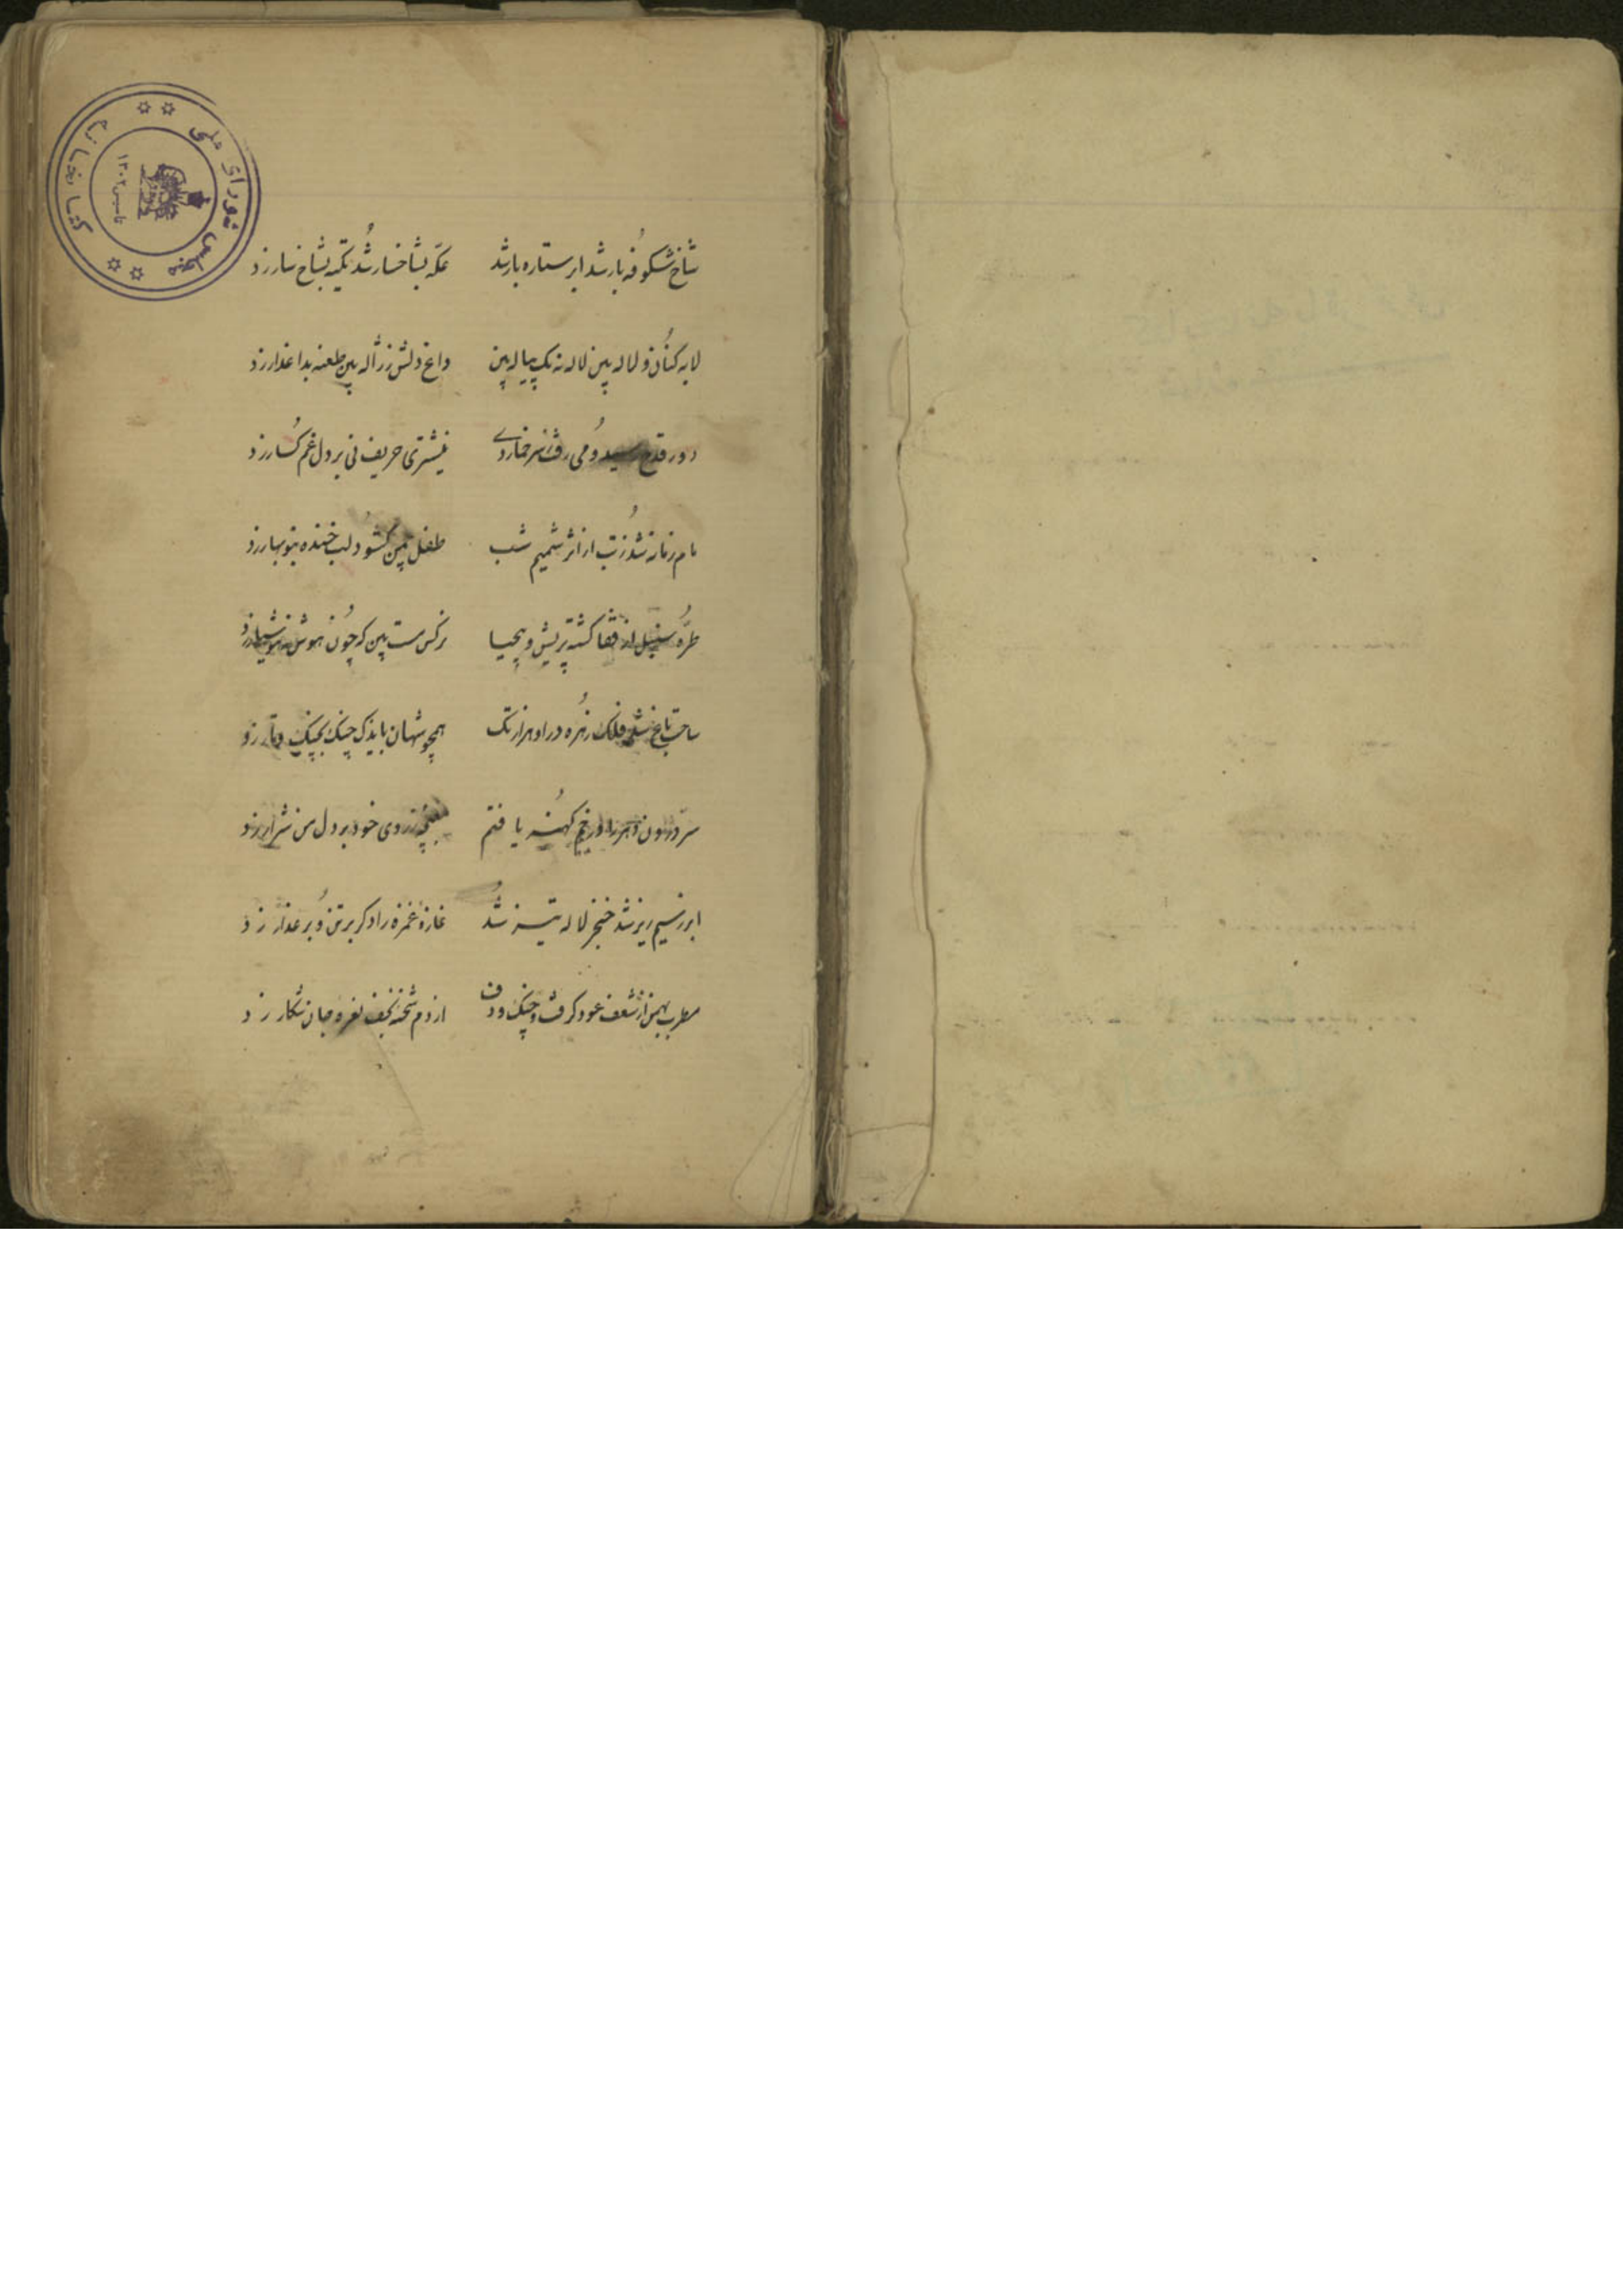 شاخ شکوفه بار شد ابر ستاره بار شد عکه بشاخسار شد تکیه بشاخسار زد
لابه کنان و لاله بین لاله نه یک پیاله بین داغ دلش ز ژاله بین طعنه بداغدار زد
دور قدح رسید و می رفت ز سر خمار دی نیشتری حریف نی بر دل غم گسار زد
مام زمانه شد ز تب از اثر شمیم شب طفل چمن گشود لب خنده بنوبهار زد
طره سنبل از قفا گشته پریش و بیحیا نرگس مست بین که چون هوش ز هوشیار زد
ساحت باغ شد فلک زهره در او هزار تک همچو شهان بایذک چنگ بچنگ و تار زد
سر درون دهر را در خم کهنه یافتم ز روی خود بر دل من شرار زد
ابر نسیم ریز شد خنجر لاله تیز شد غازه غمزه را دگر بر تن و بر عذار زد
مطرب بهمن از شعف عود گرفت و چنگ و دف از دم شحنه نجف نعره جان شکار زد
کتابخانه مجلس شورای ملی
تاسیس ۱۳۰۲